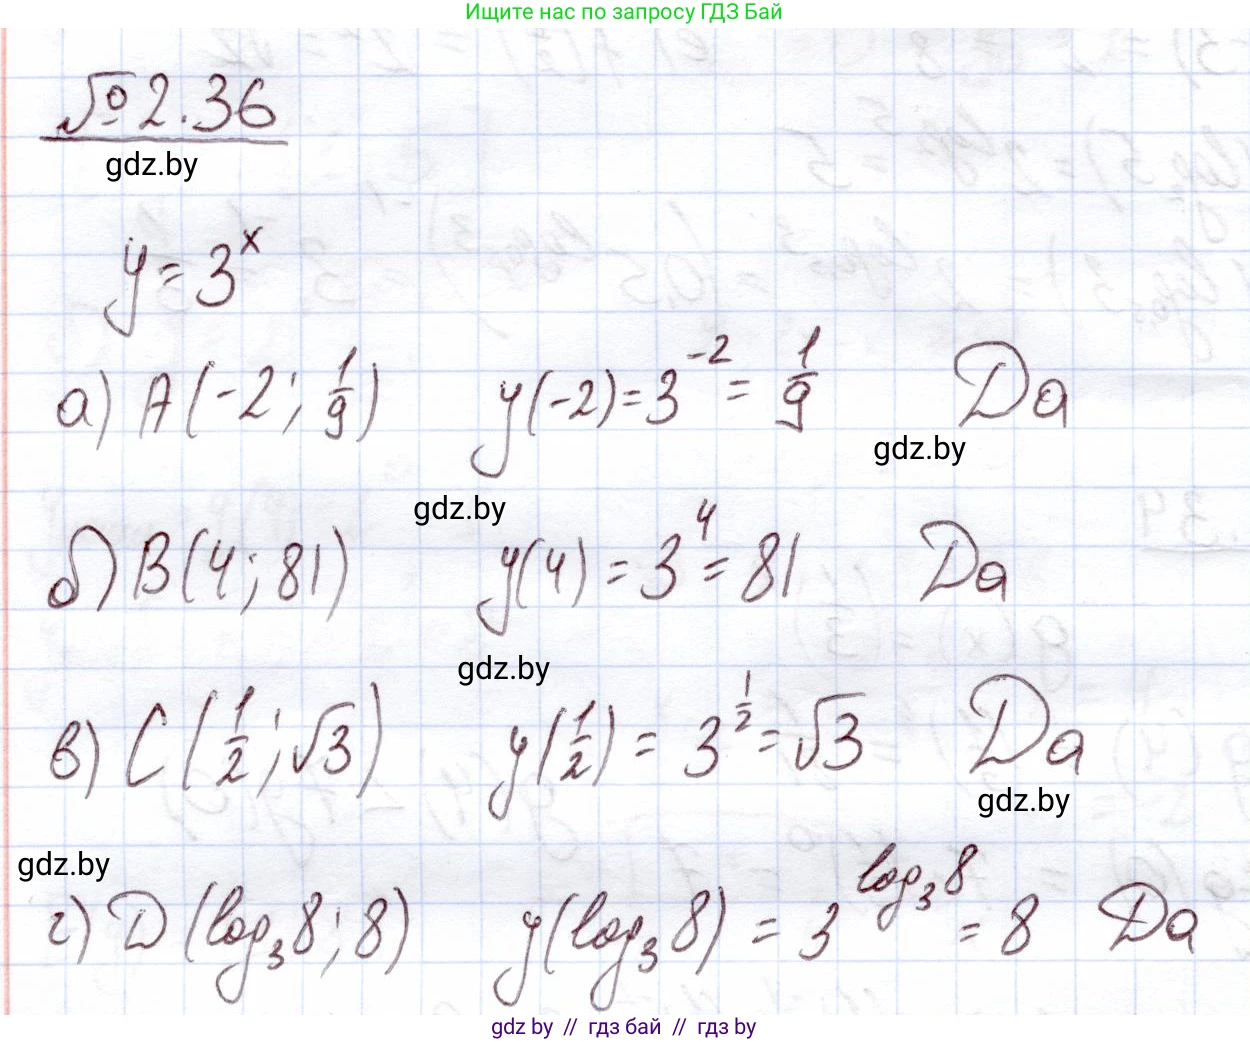 Ищите нас по запросу ГДЗ Бай
№ 2.36
gdz.by
y = 3^x
а) A(-2; 1/9) y(-2) = 3^-2 = 1/9 Да
gdz.by
gdz.by
б) B(4; 81) y(4) = 3^4 = 81 Да
gdz.by
в) C(1/2; √3) y(1/2) = 3^1/2 = √3 Да
gdz.by
gdz.by
г) D(log₃8; 8) y(log₃8) = 3^log₃8 = 8 Да
gdz.by // гдз бай // гдз by